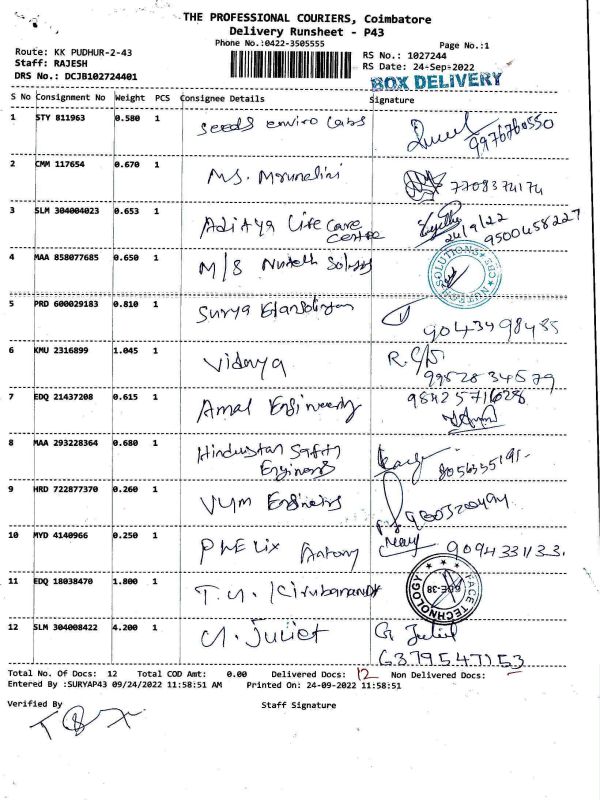 THE PROFESSIONAL COURIERS, Coimbatore
Delivery Runsheet - P43
Phone No.:0422-3505555
Page No.:1
Route: KK PUDHUR-2-43
RS No.: 1027244
Staff: RAJESH
RS Date: 24-Sep-2022
DRS No.: DCJB102724401
BOX DELIVERY
S No Consignment No Weight PCS Consignee Details Signature
1 STY 811963 0.580 1 Seeds enviro labs
9976760550
2 CMM 117654 0.670 1 Ms. Mrunalini 7708374174
3 SLM 304004023 0.653 1 Aditya Life care centre 24/9/22 9500458227
4 MAA 858077685 0.650 1 M/S SOLUTIONS
5 PRD 600029183 0.810 1 Surya 9043498485
6 KMU 2316899 1.045 1 Vidhya R. 9952834579
7 EDQ 21437208 0.615 1 Amal Engineering
8 MAA 293228364 0.680 1 Hindustan Safety Engineers
9 HRD 722877370 0.260 1 Vym Engineers
10 MYD 4140966 0.250 1 Phelix Antony 9094331133.
11 EDQ 18038470 1.800 1 T.U. Kirubanandh FACE TECHNOLOGY CBE-38
12 SLM 304008422 4.200 1 G. Juliet G Juliet
6379547153
Total No. Of Docs: 12 Total COD Amt: 0.00 Delivered Docs: 12 Non Delivered Docs:
Entered By :SURYAP43 09/24/2022 11:58:51 AM Printed On: 24-09-2022 11:58:51
Verified By Staff Signature